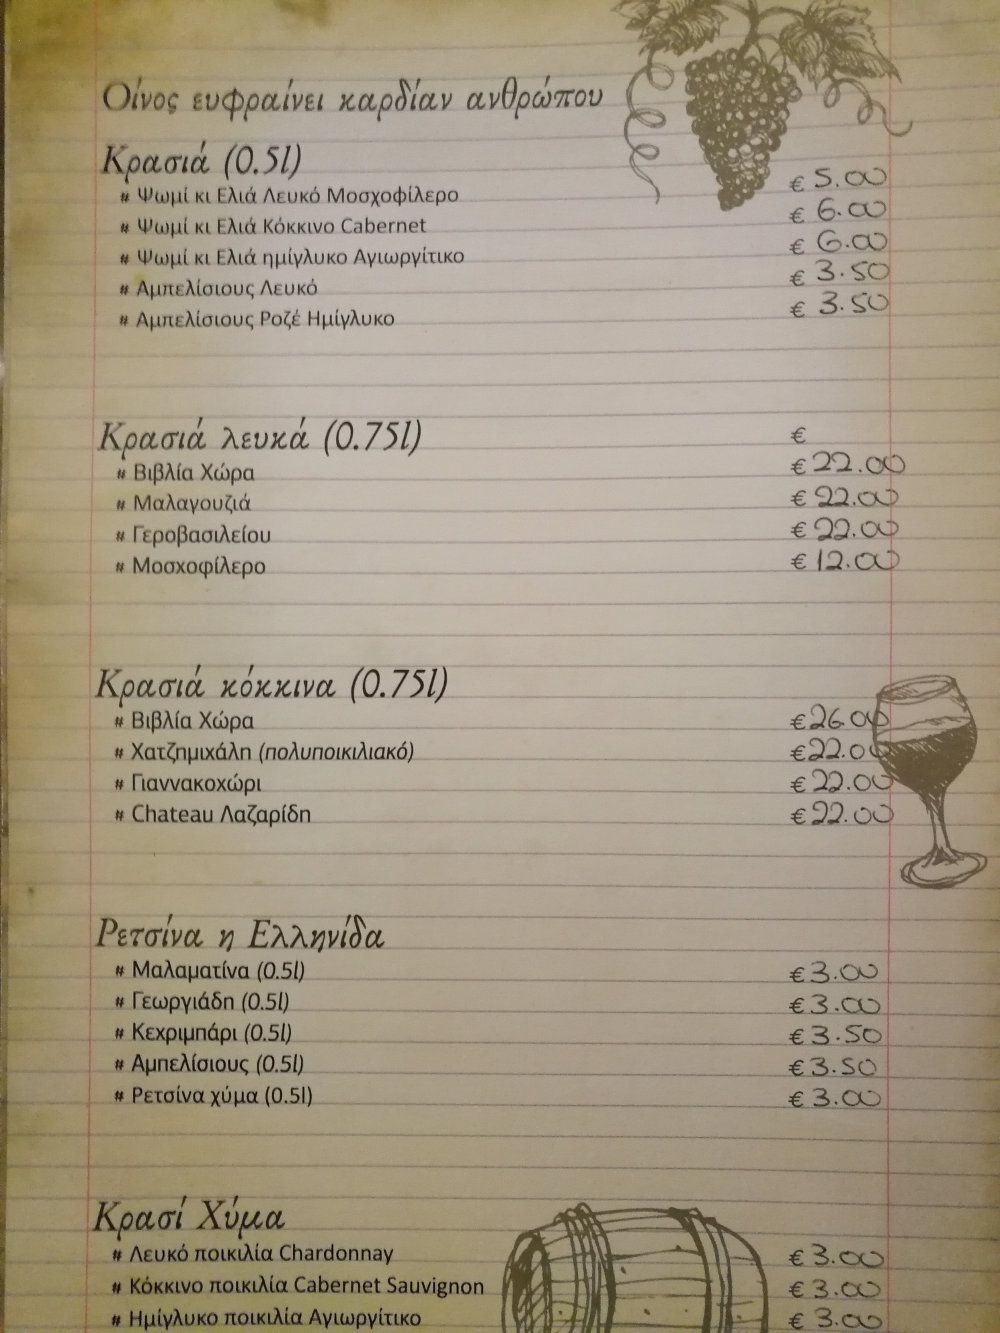 Οίνος ευφραίνει καρδίαν ανθρώπου
Κρασιά (0.5l)
# Ψωμί κι Ελιά Λευκό Μοσχοφίλερο € 5.00
# Ψωμί κι Ελιά Κόκκινο Cabernet € 6.00
# Ψωμί κι Ελιά ημίγλυκο Αγιωργίτικο € 6.00
# Αμπελίσιους Λευκό € 3.50
# Αμπελίσιους Ροζέ Ημίγλυκο € 3.50
Κρασιά λευκά (0.75l) €
# Βιβλία Χώρα € 22.00
# Μαλαγουζιά € 22.00
# Γεροβασιλείου € 22.00
# Μοσχοφίλερο € 12.00
Κρασιά κόκκινα (0.75l)
# Βιβλία Χώρα € 26.00
# Χατζημιχάλη (πολυποικιλιακό) € 22.00
# Γιαννακοχώρι € 22.00
# Chateau Λαζαρίδη € 22.00
Ρετσίνα η Ελληνίδα
# Μαλαματίνα (0.5l) € 3.00
# Γεωργιάδη (0.5l) € 3.00
# Κεχριμπάρι (0.5l) € 3.50
# Αμπελίσιους (0.5l) € 3.50
# Ρετσίνα χύμα (0.5l) € 3.00
Κρασί Χύμα
# Λευκό ποικιλία Chardonnay € 3.00
# Κόκκινο ποικιλία Cabernet Sauvignon € 3.00
# Ημίγλυκο ποικιλία Αγιωργίτικο € 3.00